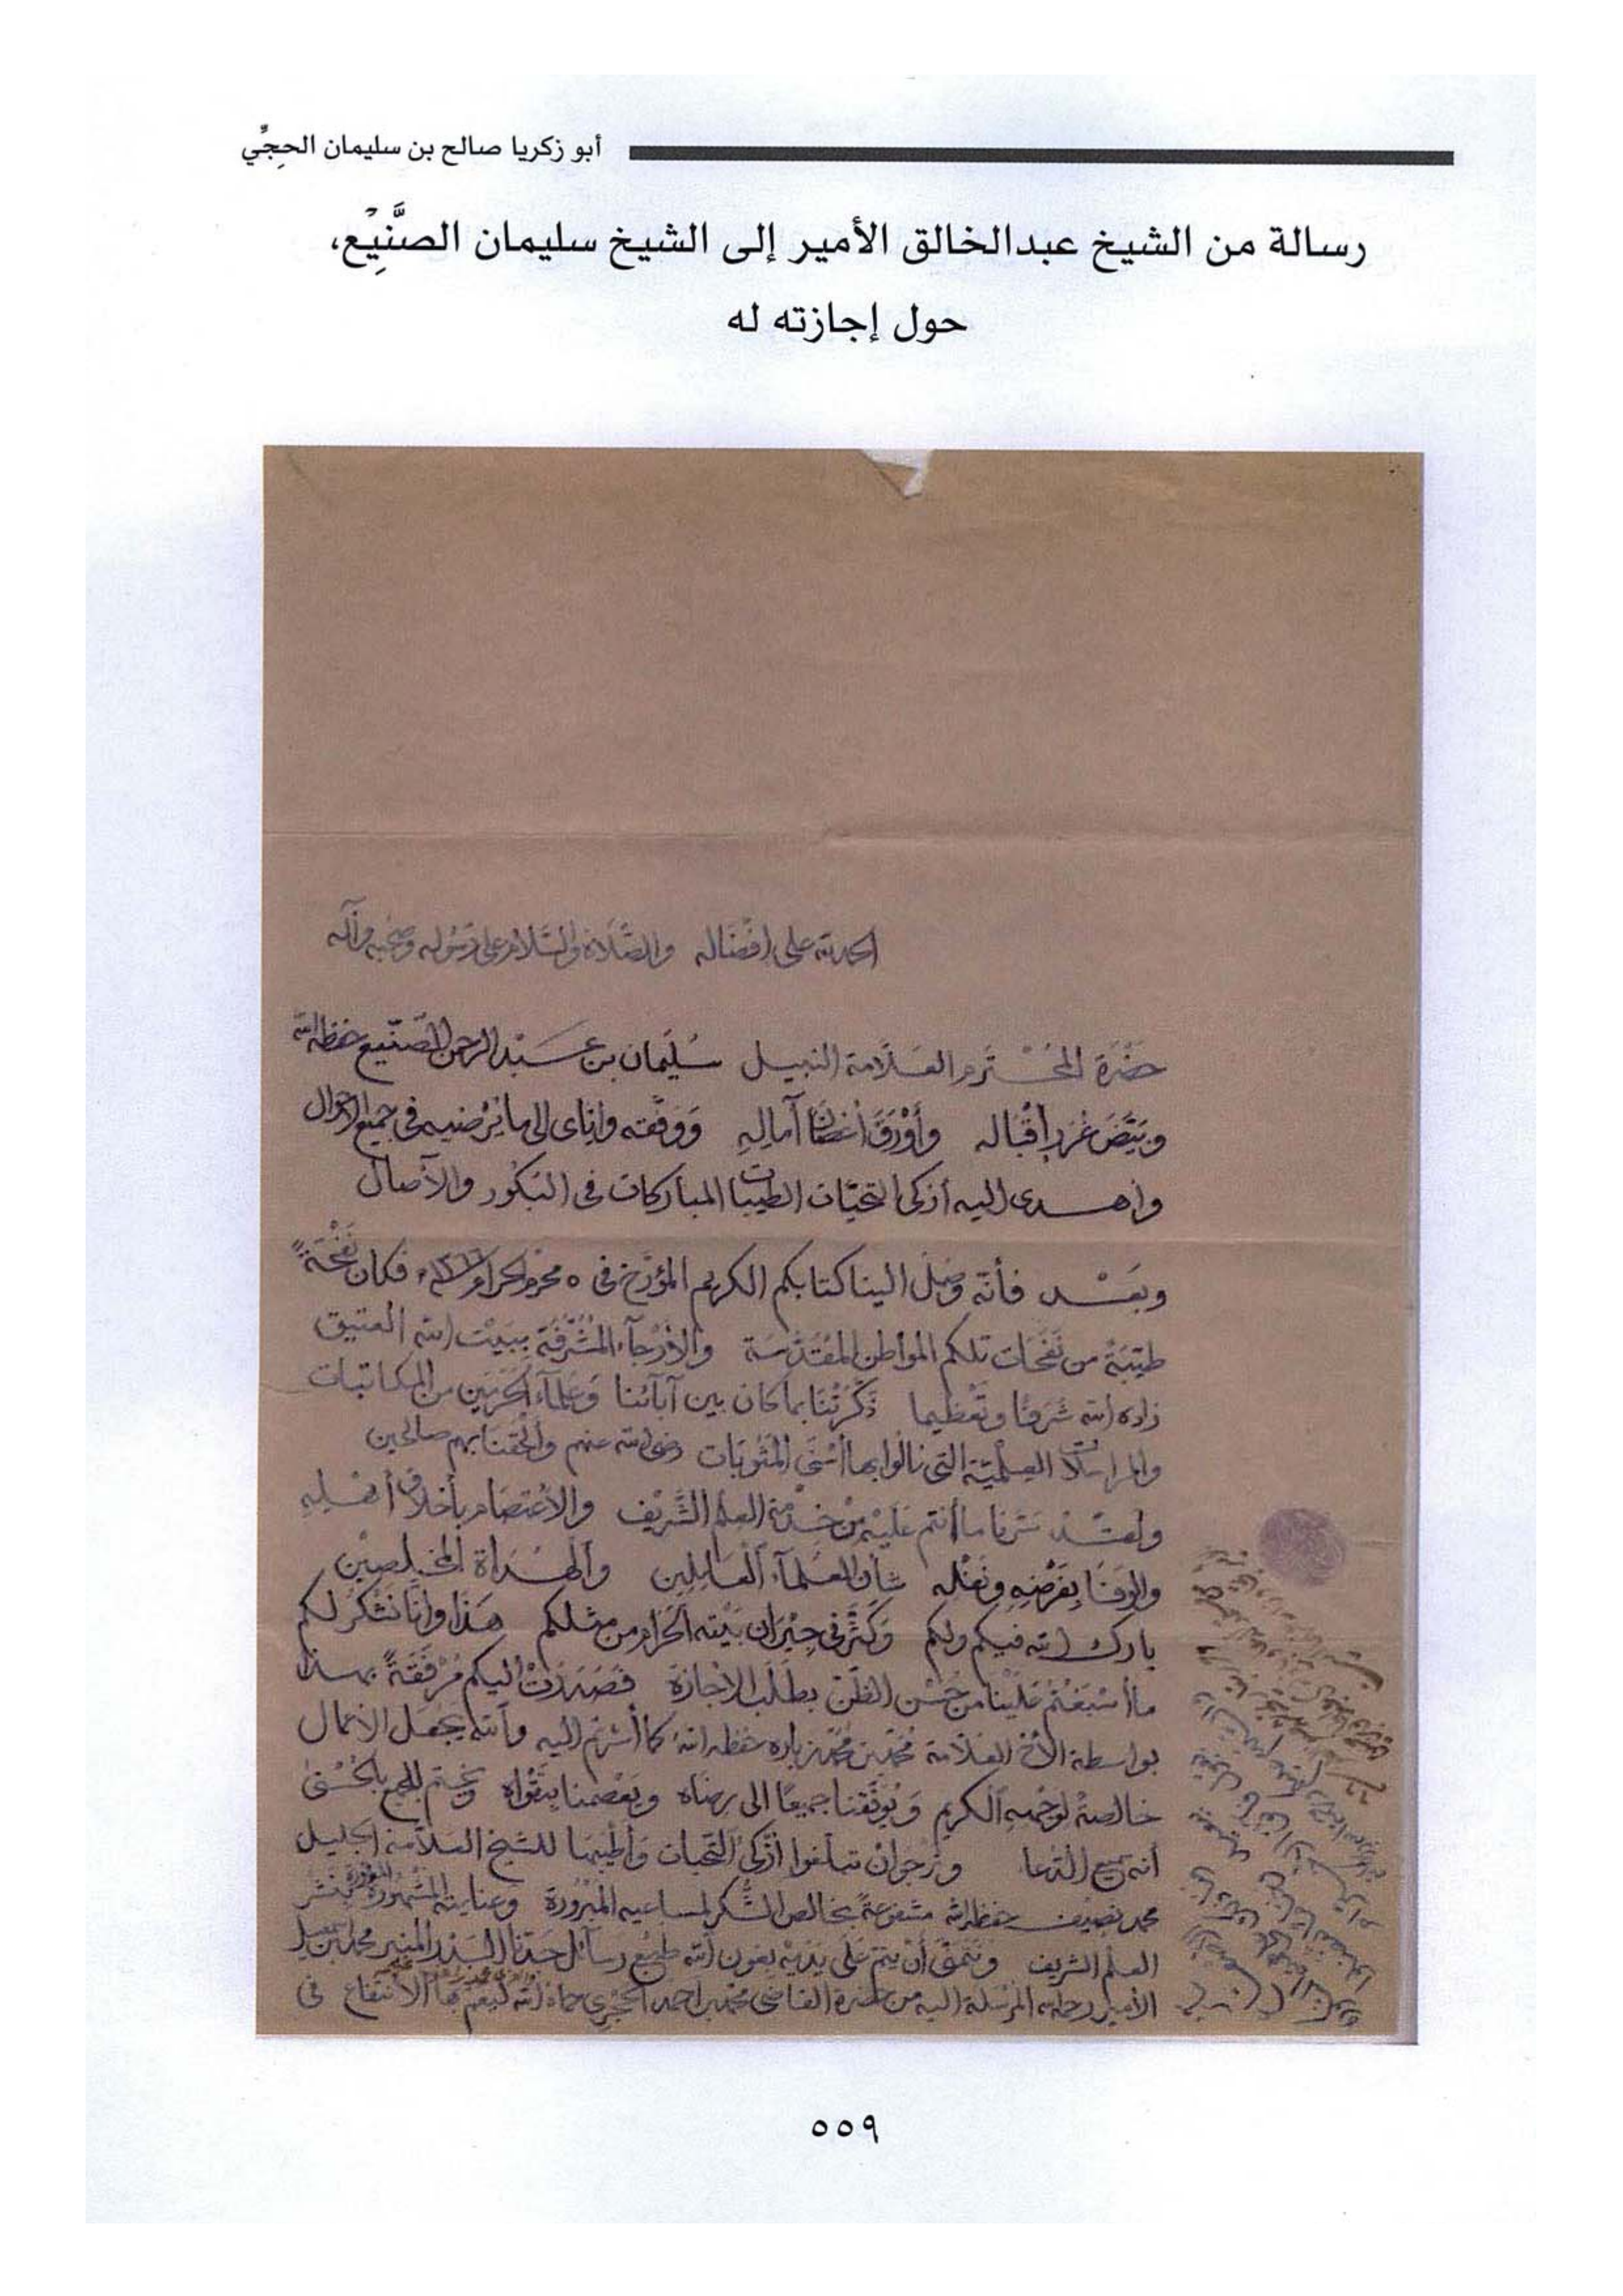 أبو زكريا صالح بن سليمان الحجِّي
رسالة من الشيخ عبدالخالق الأمير إلى الشيخ سليمان الصنَّيِع،
حول إجازته له
الحمد لله على إفضاله والصَّلاة والسَّلام على رسُوله وصحبه وآله
حضْرَة المحْتَرم العلَّامة النبيل سُليمان بن عبْد الرحمن الصنَّيع حفظه الله
وبيَّضَ غرر إقْباله وأوْرَقَ أغصَانَ آمالِهِ ووَفَّقه وإيَّاي إلى ما يُرْضيه في جميع الأحوال
وأهدى إليه أزكى التحيَّات الطيبات المباركات في البكُور والآصال
وبَعْد فأنَّه وصَل الينا كتابكم الكريم المؤرَّخ في ٥ محرم الحرام فكان نَفْحَةً
طيّبَةً من نَفَحَات تلكم المواطن المقدَّسَة والأرْجآء المُشَرَّفَة ببَيْت الله العتيق
زاده الله شَرَفًا وتَعْظيما ذكَّرَتْنَا بما كان بين آبآئنا وَعُلمآء الحَرَمَين من المكاتبات
والمراسلات العلْميَّة التي نالُوا بها أسْنَى المَثُوبَات رضي الله عنهم وألْحَقنَا بهم صالحين
ولقَدْ سَرَّنا ما أنتم عَلَيْه من خِدْمَة العلم الشَّريف والاعْتصَام بأخلاق أهْلِهِ
والوَفَا بفَرْضِهِ ونَفْله شأن العُلَمآء العَامِلِين والهُدَاة المخْلِصِين
بارك الله فيكم ولكم وكَثَّر في جِيْرَان بَيْته الحَرام من مثلكم هَذَا وإنَّا نشْكُر لكم
ما أسْبَغْتُم عَلَيْنَا من حُسْن الظَّن بطَلَب الإجَازَة فصَدَرَتْ اليكم مُرْفَقَةً بهذا
بواسطة الأخ العلّامة مُحَمَّد بن مُحَمَّد زباره حفظه الله كما أشرتم إليه والله يجعل الأعمال
خالصةً لوَجْهِهِ الكريم وَيُوَفِّقنا جميعًا إلى رضَاه ويَعْصمنا بتَقْوَاه ويختم للجميع بالحُسْنى
أنه سميع الدّعا ونرجوا أنْ تبلغوا أزكى التَّحيات وأطْيَبها للشيخ العلَّامة الجليل
محمد نصيف حفظه الله مشفوعةً بخالص الشُّكر لمساعيه المَبْرُورَة وعنايته المشهُورَة بنَشْر
العلم الشريف ونتَمَنَّى أنْ يتمّ عَلى يَدَيْه بعَون الله طَبْع رسآئل جَدّنَا البَدْر المنير محمد بن إسمعيل
الأمير رحمه الله المرسلة إليه من حضرة القاضي محمد بن أحمد الحجري حماه الله ليَعُمّ بها الانتفاع في
٥٥٩